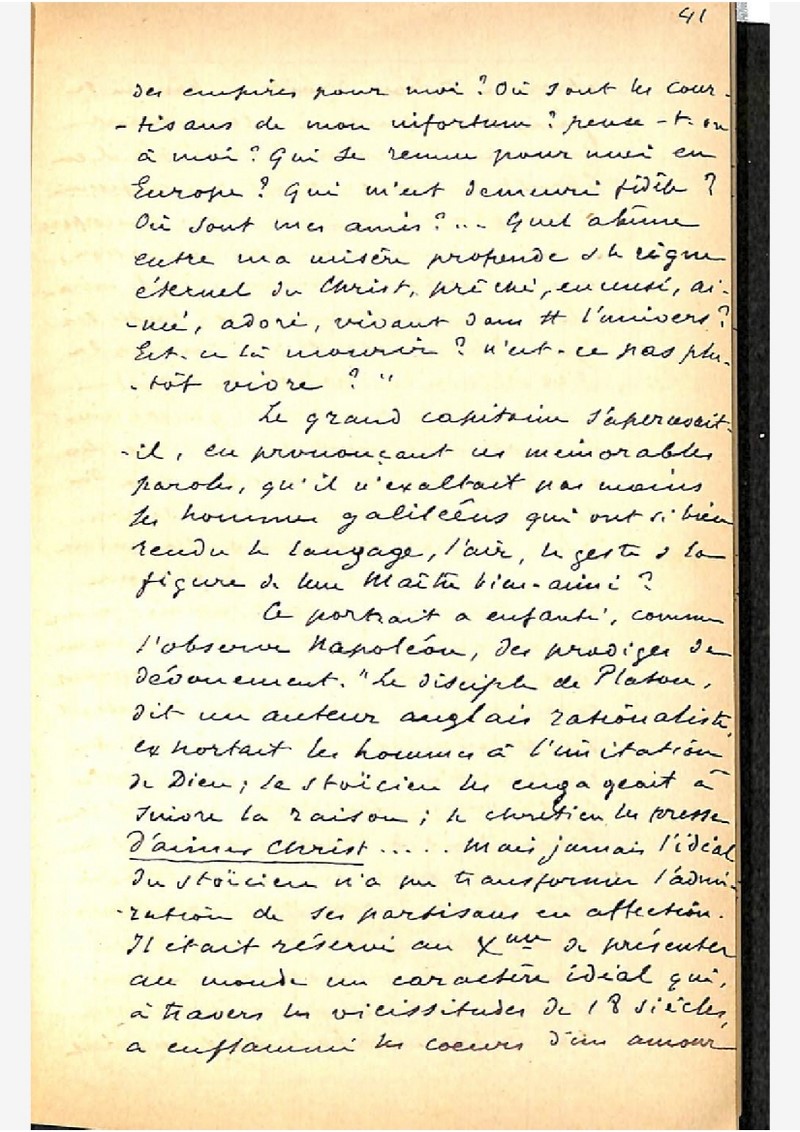 41
des empires pour moi ? Où sont les cour-
-tisans de mon infortune ? pense-t-on
à moi ? Qui se remue pour moi en
Europe ? Qui m'est demeuré fidèle ?
Où sont mes amis ?... Quel abîme
entre ma misère profonde & le règne
éternel du Christ, prêché, encensé, ai-
-mé, adoré, vivant dans l'univers ?
Est-ce là mourir ? n'est-ce pas plu-
-tôt vivre ? "
Le grand capitaine s'apercevait-
-il, en prononçant ces mémorables
paroles, qu'il n'exaltait pas moins
les hommes galiléens qui ont si bien
rendu le langage, l'air, le geste & la
figure de leur Maître bien-aimé ?
Ce portrait a enfanté, comme
l'observe Napoléon, des prodiges de
dévouement. "Le disciple de Platon,
dit un auteur anglais rationaliste,
exhortait les hommes à l'imitation
de Dieu ; le stoïcien les engageait à
suivre la raison ; le chrétien les presse
d'aimer Christ ..... Mais jamais l'idéal
du stoïcien n'a pu transformer l'admi-
-ration de ses partisans en affection.
Il était réservé au Xme de présenter
au monde un caractère idéal qui,
à travers les vicissitudes de 18 siècles,
a enflammé les coeurs d'un amour